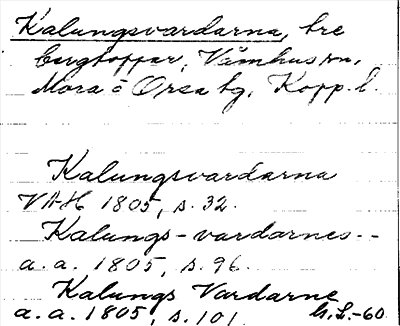 Kalungsvardarna, tre
bergtoppar, Våmhus sn,
Mora o Orsa tg, Kopp. l.
Kalungsvardarna
VAH 1805, s. 32.
Kalungs-vardarnes--
a. a. 1805, s. 96.
Kalungs Vardarne
a. a. 1805, s. 101. G.L.-60.